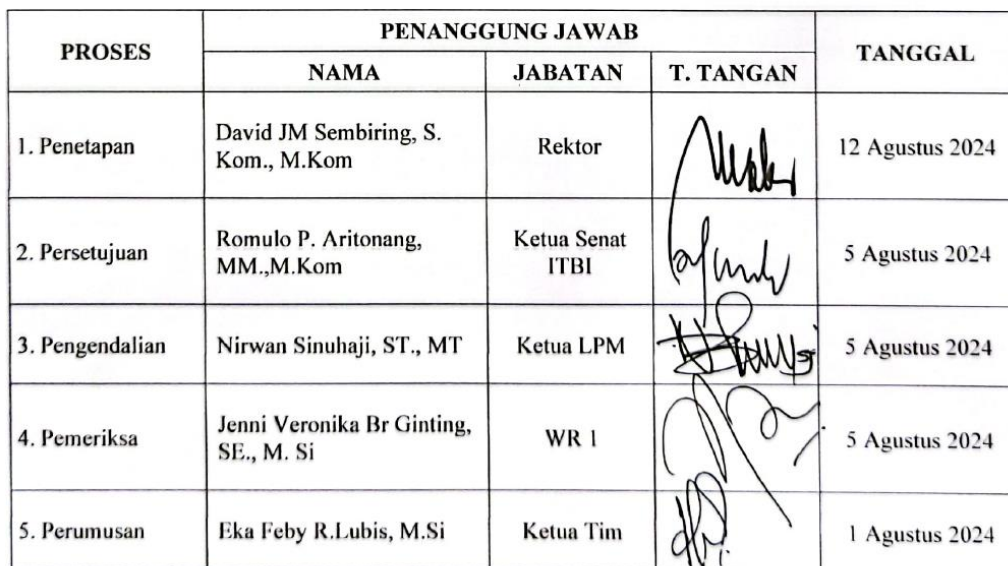 PROSES
PENANGGUNG JAWAB
TANGGAL
NAMA
JABATAN
T. TANGAN
1. Penetapan
David JM Sembiring, S.
Kom., M.Kom
Rektor
12 Agustus 2024
2. Persetujuan
Romulo P. Aritonang,
MM.,M.Kom
Ketua Senat
ITBI
5 Agustus 2024
3. Pengendalian
Nirwan Sinuhaji, ST., MT
Ketua LPM
5 Agustus 2024
4. Pemeriksa
Jenni Veronika Br Ginting,
SE., M. Si
WR 1
5 Agustus 2024
5. Perumusan
Eka Feby R.Lubis, M.Si
Ketua Tim
1 Agustus 2024